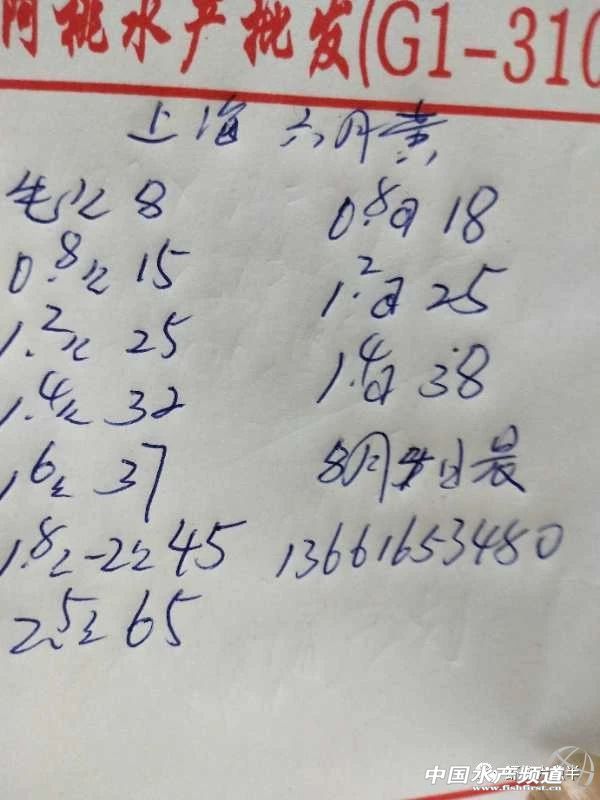 阿桃水产批发(G1-310
上海 六月黄
毛公 8
0.8公 15
1.2公 25
1.4公 32
1.6公 37
1.8公-2公 45
2.5公 65
0.8母 18
1.2母 25
1.4母 38
8月 日晨
13661653480
中国水产频道
www.fishfirst.cn